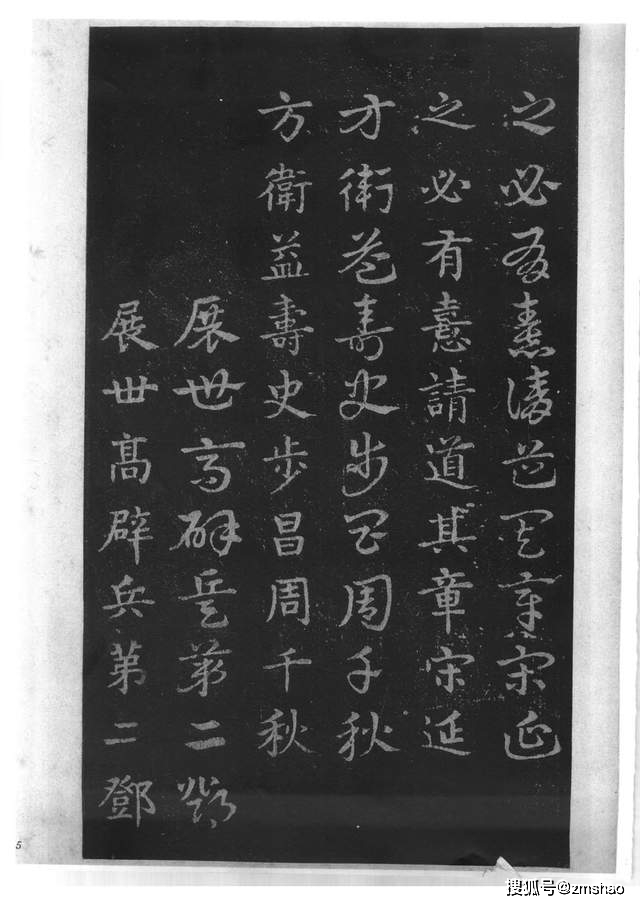 之必有憙請道其章宋延
之必有憙請道其章宋延
方衛益壽史步昌周千秋
方衛益壽史步昌周千秋
展世高辟兵第二鄧
展世髙辟兵第二鄧
5
搜狐号@zmshao